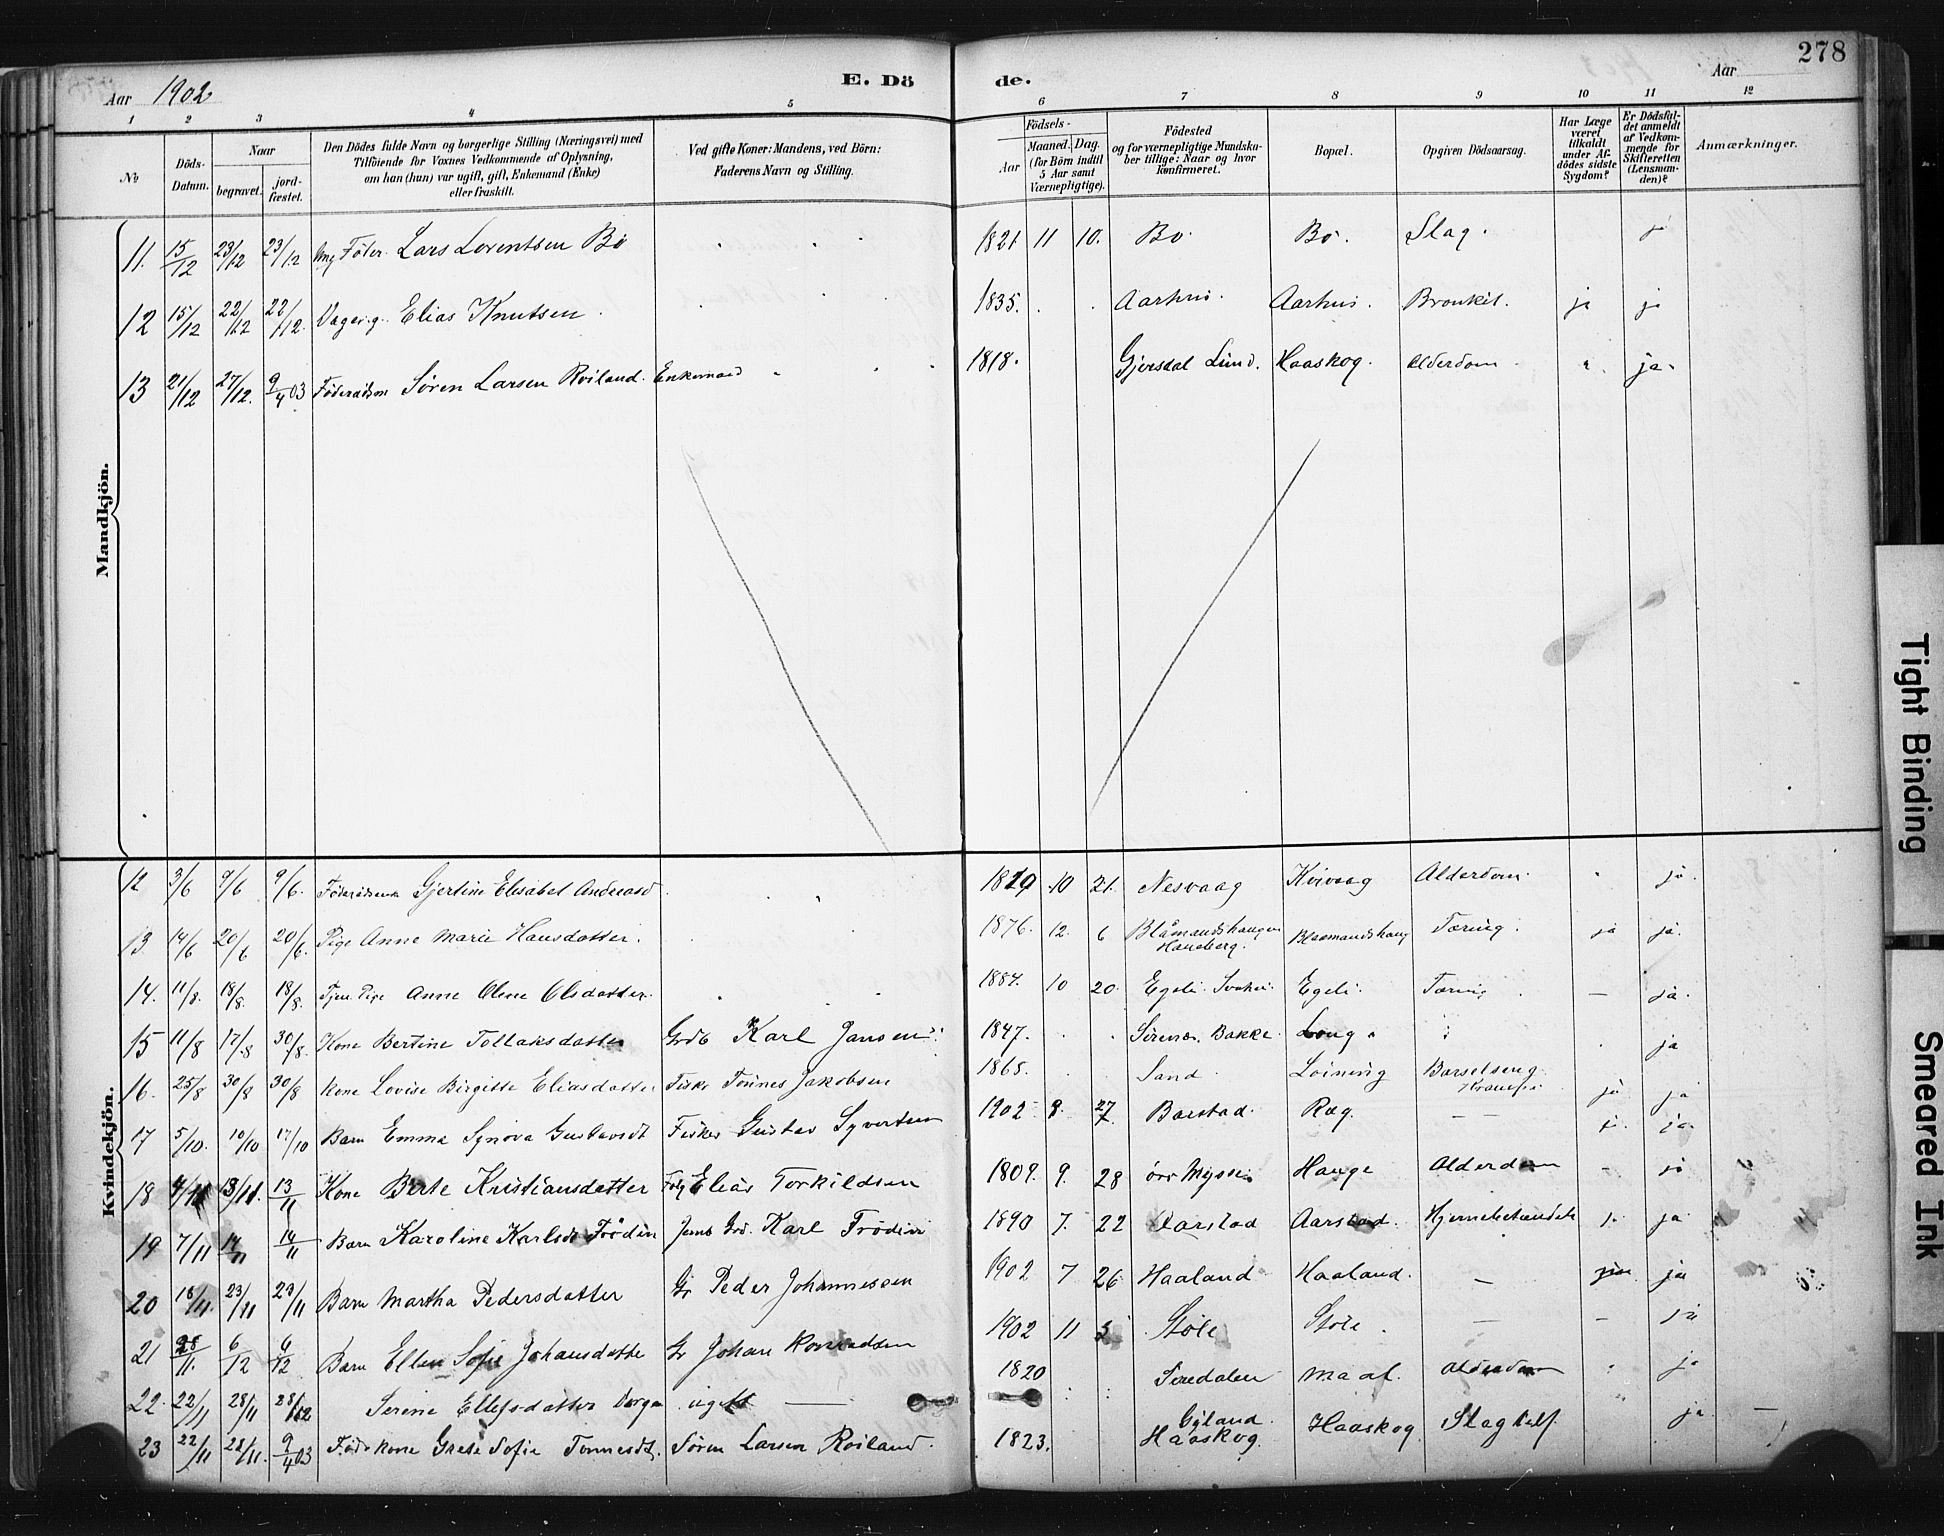 278
Aar 1902 E. Dö de. Aar
1 2 3 4 5 6 7 8 9 10 11 12
No
Döds-Datum.
Naar
begravet.
jord-fæstet.
Den Dödes fulde Navn og borgerlige Stilling (Næringsvei) med
Tilföiende for Voxnes Vedkommende af Oplysning,
om han (hun) var ugift, gift, Enkemand (Enke)
eller fraskilt.
Ved gifte Koner: Mandens, ved Börn:
Faderens Navn og Stilling.
Födsels-
Aar
Maaned. Dag.
(for Börn indtil
5 Aar samt
Værnepligtige).
Födested
og for værnepligtige Mandska-
ber tillige: Naar og hvor
konfirmeret.
Bopæl.
Opgiven Dödsaarsag.
Har Læge
været
tilkaldt
under Af-
dödes sidste
Sygdom?
Er Dödsfal-
det anmeldt
af Vedkom-
mende for
Skifteretten
(Lensman-
den)?
Anmærkninger.
Mandkjön.
11. 15/12 23/12 23/12 Lars Lorentsen Bö 1821 11 10. Bö Bö. Slag. ja
12 15/12 22/12 22/12 Elias Knutsen 1835. Aarhus. Aarhus. Bronkit. ja ja
13 21/12 27/12. 9/4 03 Sören Larsen Röiland. Enkemand 1818. Gjersdal Lund. Haaskog. Alderdom ja.
Kvindekjön.
12 3/6 9/6 9/6. Gjertine Elisabet 10 21. Nesvaag Kvivaag Alderdom. ja.
13. 14/6 20/6 20/6. Pige Anne Marie Hansdatter. 1876. 12. 6 Blåmandshaugen Haneberg. Blaamandshaug Tæring. ja ja.
14. 11/8. 18/8. 18/8. Tjen. Pige Anne Olene Olsdatter. 1884. 10 20. Egeli. Egeli. Tæring ja.
15 11/8 17/8 30/8. Kone Bertine Tollaksdatter Grdb Karl Jansen 1847. Bakke Loug ja
16. 25/8 30/8 30/8 Kone Lovise Birgitte Eliasdatter Fisker Tönnes Jakobsen 1865. Sand Löining Barselseng ja ja
17 5/10. 10/10 17/10 Barn Emma Synöva Gustavsdt Fisker Gustav Syvertsen 1902 27 Barstad. Ræg. — — ja. ja.
18 13/11. 13/11 Kone Berte Kristiansdatter Elias Torkildsen 1809. 9. 28 Hauge Alderdom ja
19 7/11 14/11 14/11 Barn Karoline Karlsdt Frödin Karl Frödin 1890 7. 22 Aarstad Aarstad. ja
20 18/11. 23/11 23/11 Barn Martha Pedersdatter Gr Peder Johannessen 1902 7 26 Haaland Haaland. — ja
21 28/11 6/12 6/12 Barn Ellen Sofie Johansdatte Gr Johan 1902 11 Stöle Stöle. — — ja
22. 22/11 28/11 28/12 Serine Ellefsdatter ugift — 1820 Siredalen Maal. Alderdom ja
23 22/11 28/11. 9/4 03 Föd. kone Grete Sofie Tönnesdt. Sören Larsen Röiland. 1823. Haaskog. Haaskog ja. —
Tight Binding
Smeared Ink